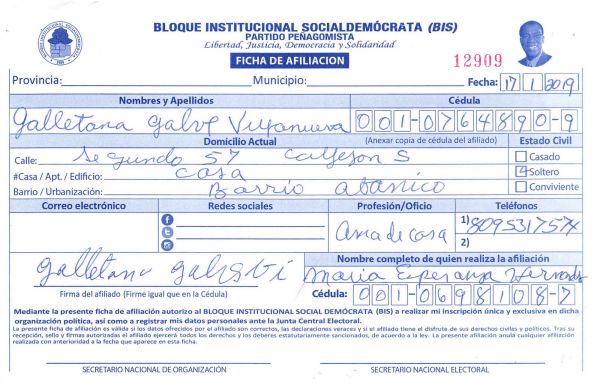 BLOQUE INSTITUCIONAL SOCIALDEMÓCRATA (BIS)
PARTIDO PEÑAGOMISTA
Libertad, Justicia, Democracia y Solidaridad
FICHA DE AFILIACION
12909
Provincia: Municipio: Fecha: 17 1 2019
Nombres y Apellidos Cédula
Galletana Galve Villanueva 001-0764890-9
Domicilio Actual (Anexar copia de cédula del afiliado) Estado Civil
Calle: Segundo 57 Callejon S Casado
#Casa / Apt. / Edificio: Casa Soltero
Barrio / Urbanización: Barrio abanico Conviviente
Correo electrónico Redes sociales Profesión/Oficio Teléfonos
Ama de casa 1) 8095317574
2)
Nombre completo de quien realiza la afiliación
Galletana Maria Esperanza
Firma del afiliado (Firme igual que en la Cédula) Cédula: 001-0698108-7
Mediante la presente ficha de afiliación autorizo al BLOQUE INSTITUCIONAL SOCIAL DEMÓCRATA (BIS) a realizar mi inscripción única y exclusiva en dicha
organización política, así como a registrar mis datos personales ante la Junta Central Electoral.
La presente ficha de afiliación es válida si los datos ofrecidos por el afiliado son correctos, las declaraciones veraces y si el afiliado tiene el disfrute de sus derechos civiles y políticos. Tras su
recepción, sello y firmas autorizadas el afiliado ejercerá todos los derechos y los deberes estatutariamente sancionados, de acuerdo a la ley. La presente afiliación anula cualquier afiliación
realizada con anterioridad a la fecha que aparece en esta ficha.
SECRETARIO NACIONAL DE ORGANIZACIÓN SECRETARIO NACIONAL ELECTORAL